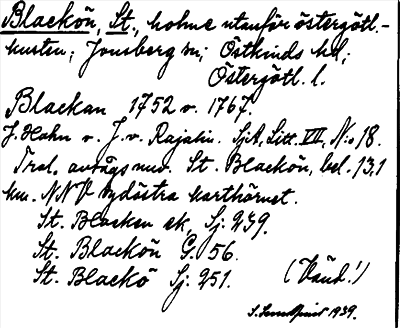 Blackön, St., holme utanför östergötl.-
kusten; Jonsberg sn; Östkinds hd;
Östergötl. l.
Blackan 1752 v. 1767.
J. Hahn v. J. v. Rajalin. SjA, Litt. VII, N:o 18.
Trol. avsågs nuv. St. Blackön, bel. 13,1
km. NNV sydöstra karthörnet.
St. Blackan ek, Sj. 239.
St. Blackön G. 56.
St. Blackö Sj. 251.
(Vänd!)
1939.